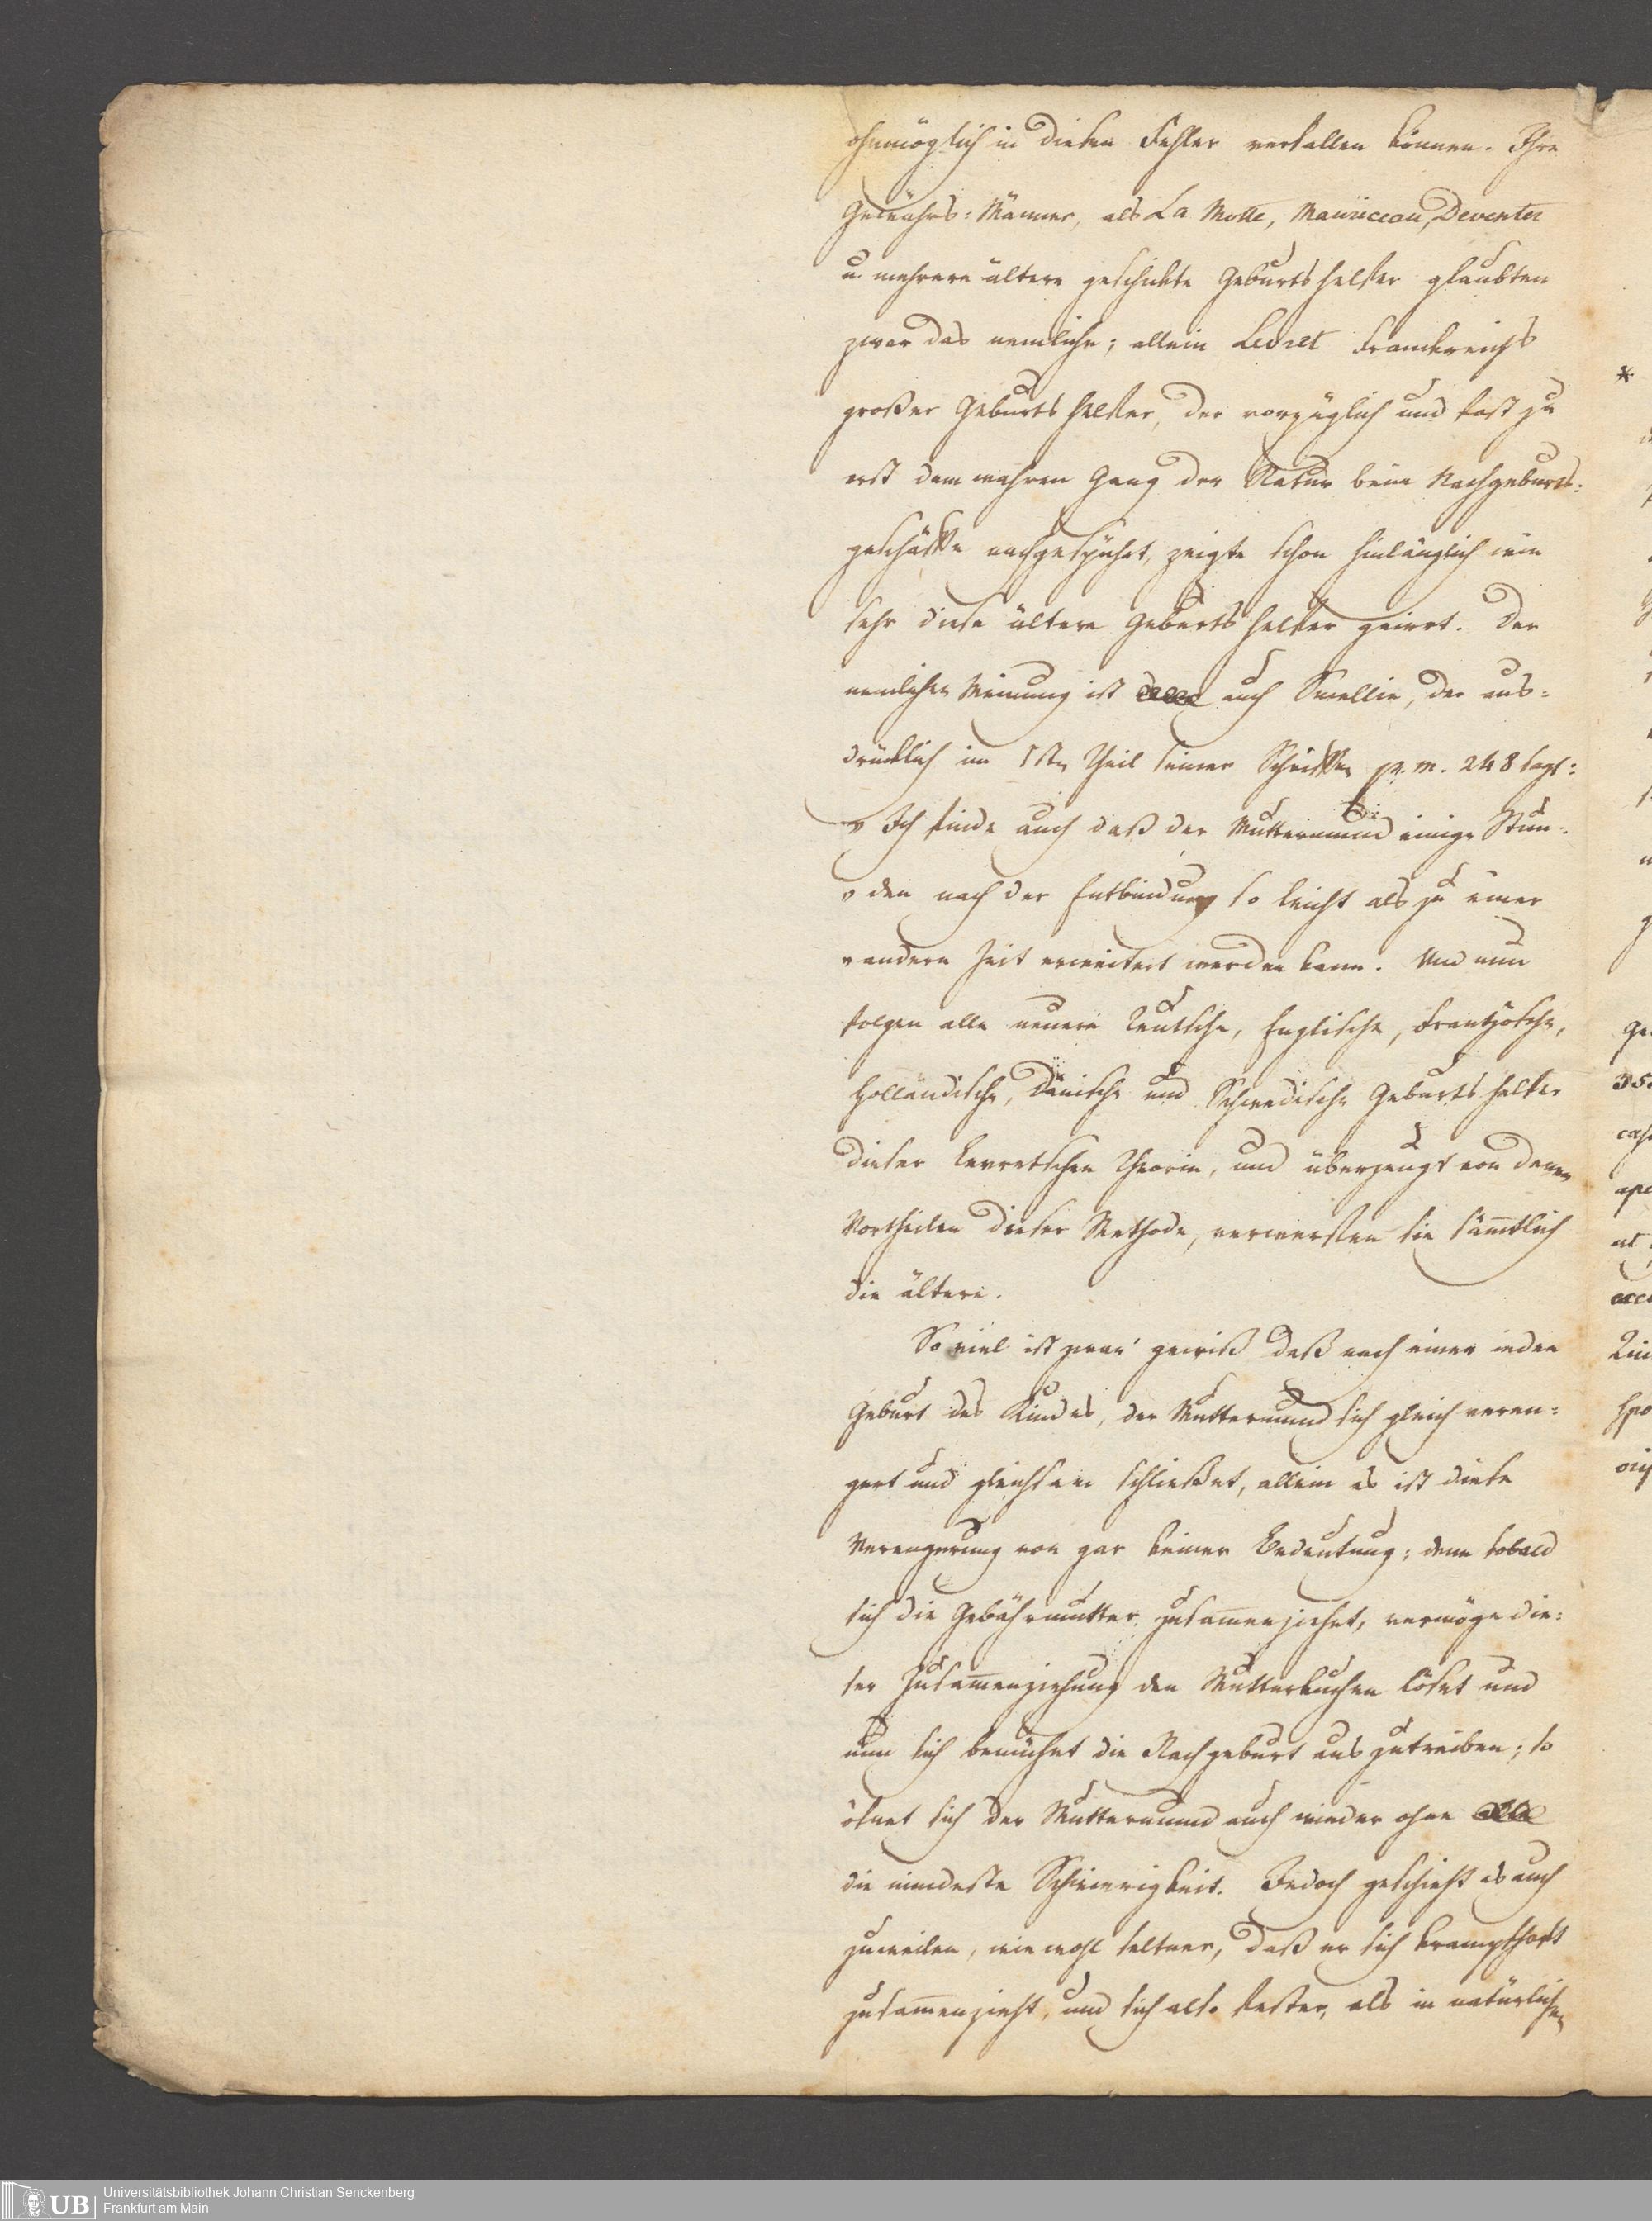 ohnmöglich in diesen Fehler verfallen können. Ihre
Gewährs=Männer, als La Motte, Mauriceau, Deventer
u. mehrere ältere geschickte Geburtshelfer glaubten
zwar das nemliche; allein Levret Franckreichs
großer Geburtshelfer, der vorzüglich und fast zu
erst dem wahren Gang der Natur beim Nachgeburts=
geschäfte nachgespührt, zeigte schon hinlänglich wie
sehr diese ältere Geburtshelfer geirrt. Der
nemlichen Meinung ist auch Smellie, der aus=
drücklich im 1sten Theil seiner Schriften p. m. 248 sagt:
„Ich finde auch daß der Muttermund einige Stun=
„den nach der Entbindung so leicht als zu einer
„andern Zeit erweitert werden kann. Und nun
folgen alle neuere Teutsche, Englische, Frantzösche,
Holländische, Dänische und Schwedische Geburtshelfer
dieser Levretschen Theorie, und überzeugt von denen
Vortheilen dieser Methode, verwerffen sie sämtlich
die ältere.
So viel ist zwar gewiß daß nach einer ieden
Geburt des Kindes, der Muttermund sich gleich veren=
gert und gleichsam schließet, allein es ist diese
Verengerung von gar keiner Bedeutung; denn sobald
sich die Gebährmutter zusammenziehet, vermöge die=
ser Zusammenziehung den Mutterkuchen löset und
nun sich bemühet die Nachgeburt auszutreiben; so
öfnet sich der Muttermund auch wieder ohne
die mindeste Schwierigkeit. Jedoch geschieht es auch
zuweilen, wiewohl seltner, daß er sich krampfhaft
zusammenzieht, und sich also fester, als in natürlichen
UB
Universitätsbibliothek Johann Christian Senckenberg
Frankfurt am Main